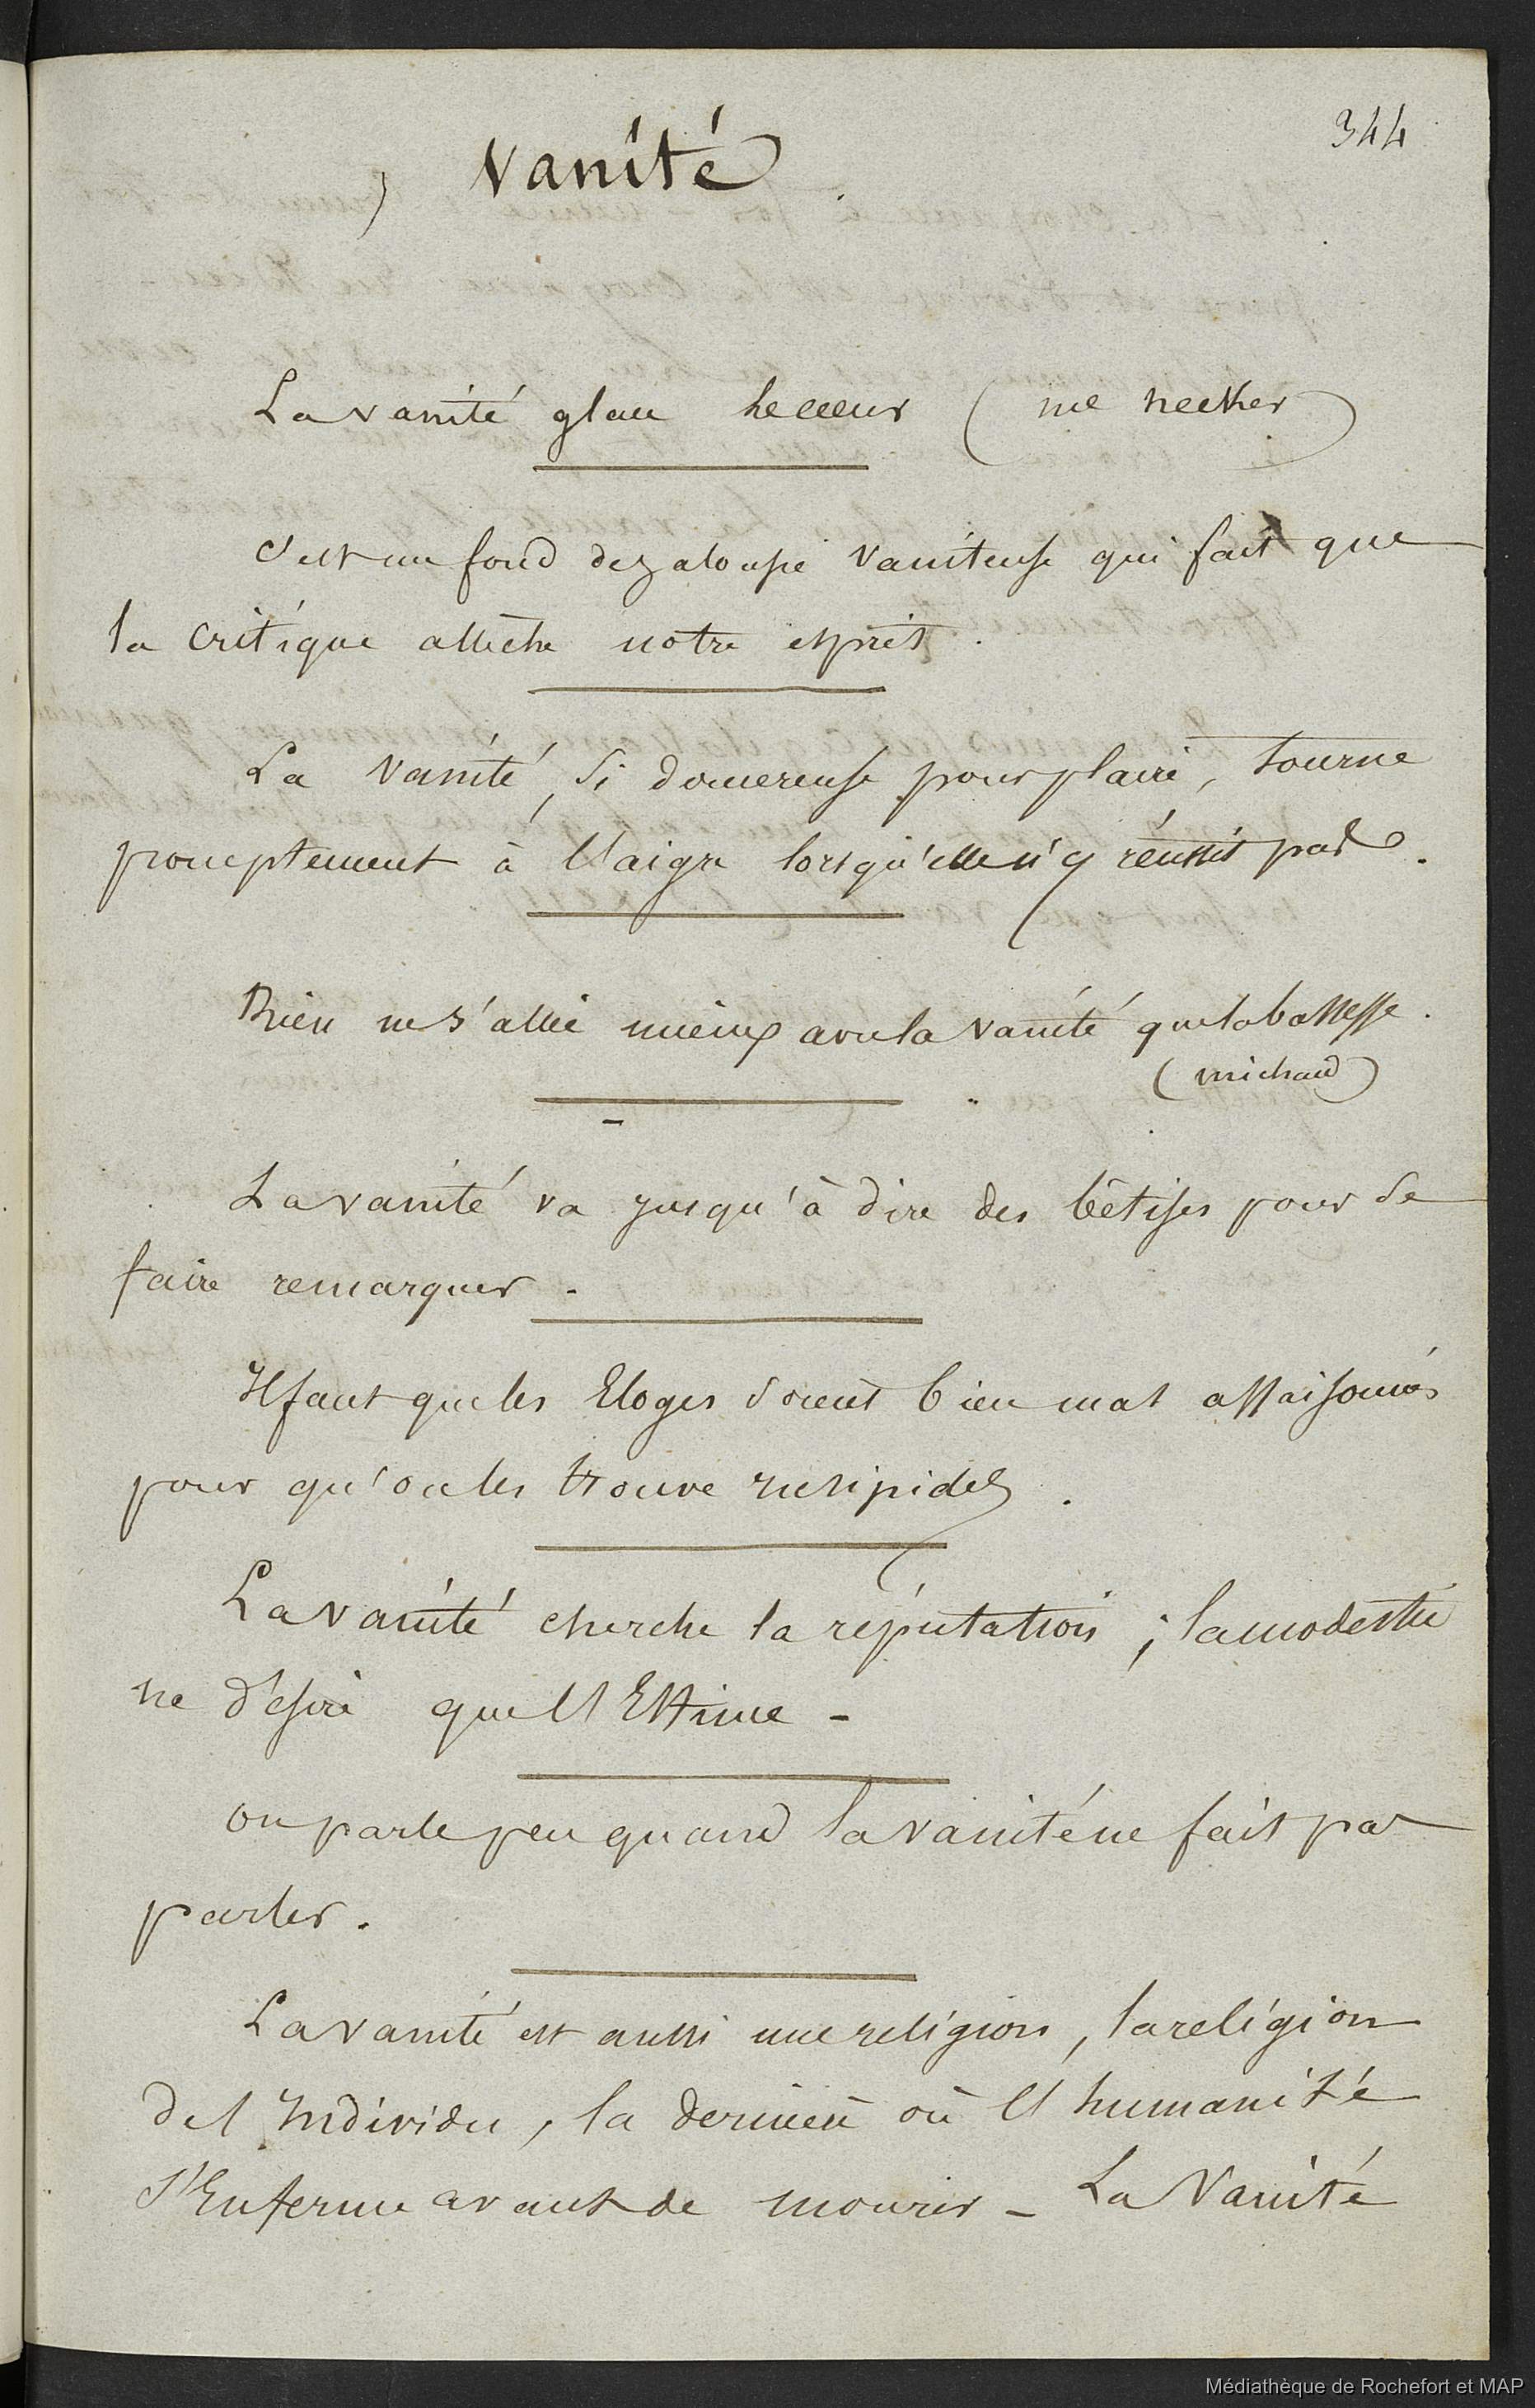 344
Vanité
La vanité glace le coeur (me necker)
C'est un fond de jalousie vaniteuse qui fait que
la critique allèche notre esprit.
La vanité, si doucereuse pour plaire, tourne
promptement à l'aigre lorsqu'elle n'y réussit pas.
Rien ne s'allie mieux avec la vanité que la bassesse.
(michaud)
La vanité va jusqu'à dire des bêtises pour se
faire remarquer.
Il faut que les Eloges soient bien mal assaisonnés
pour qu'on les trouve insipides.
La vanité cherche la réputation ; la modestie
ne désire que l'Estime -
on parle peu quand la vanité ne fait pas
parler.
La vanité est aussi une religion, la religion
de l'Individu, la dernière où l'humanité
s'Enferme avant de mourir - La Vanité
Médiathèque de Rochefort et MAP